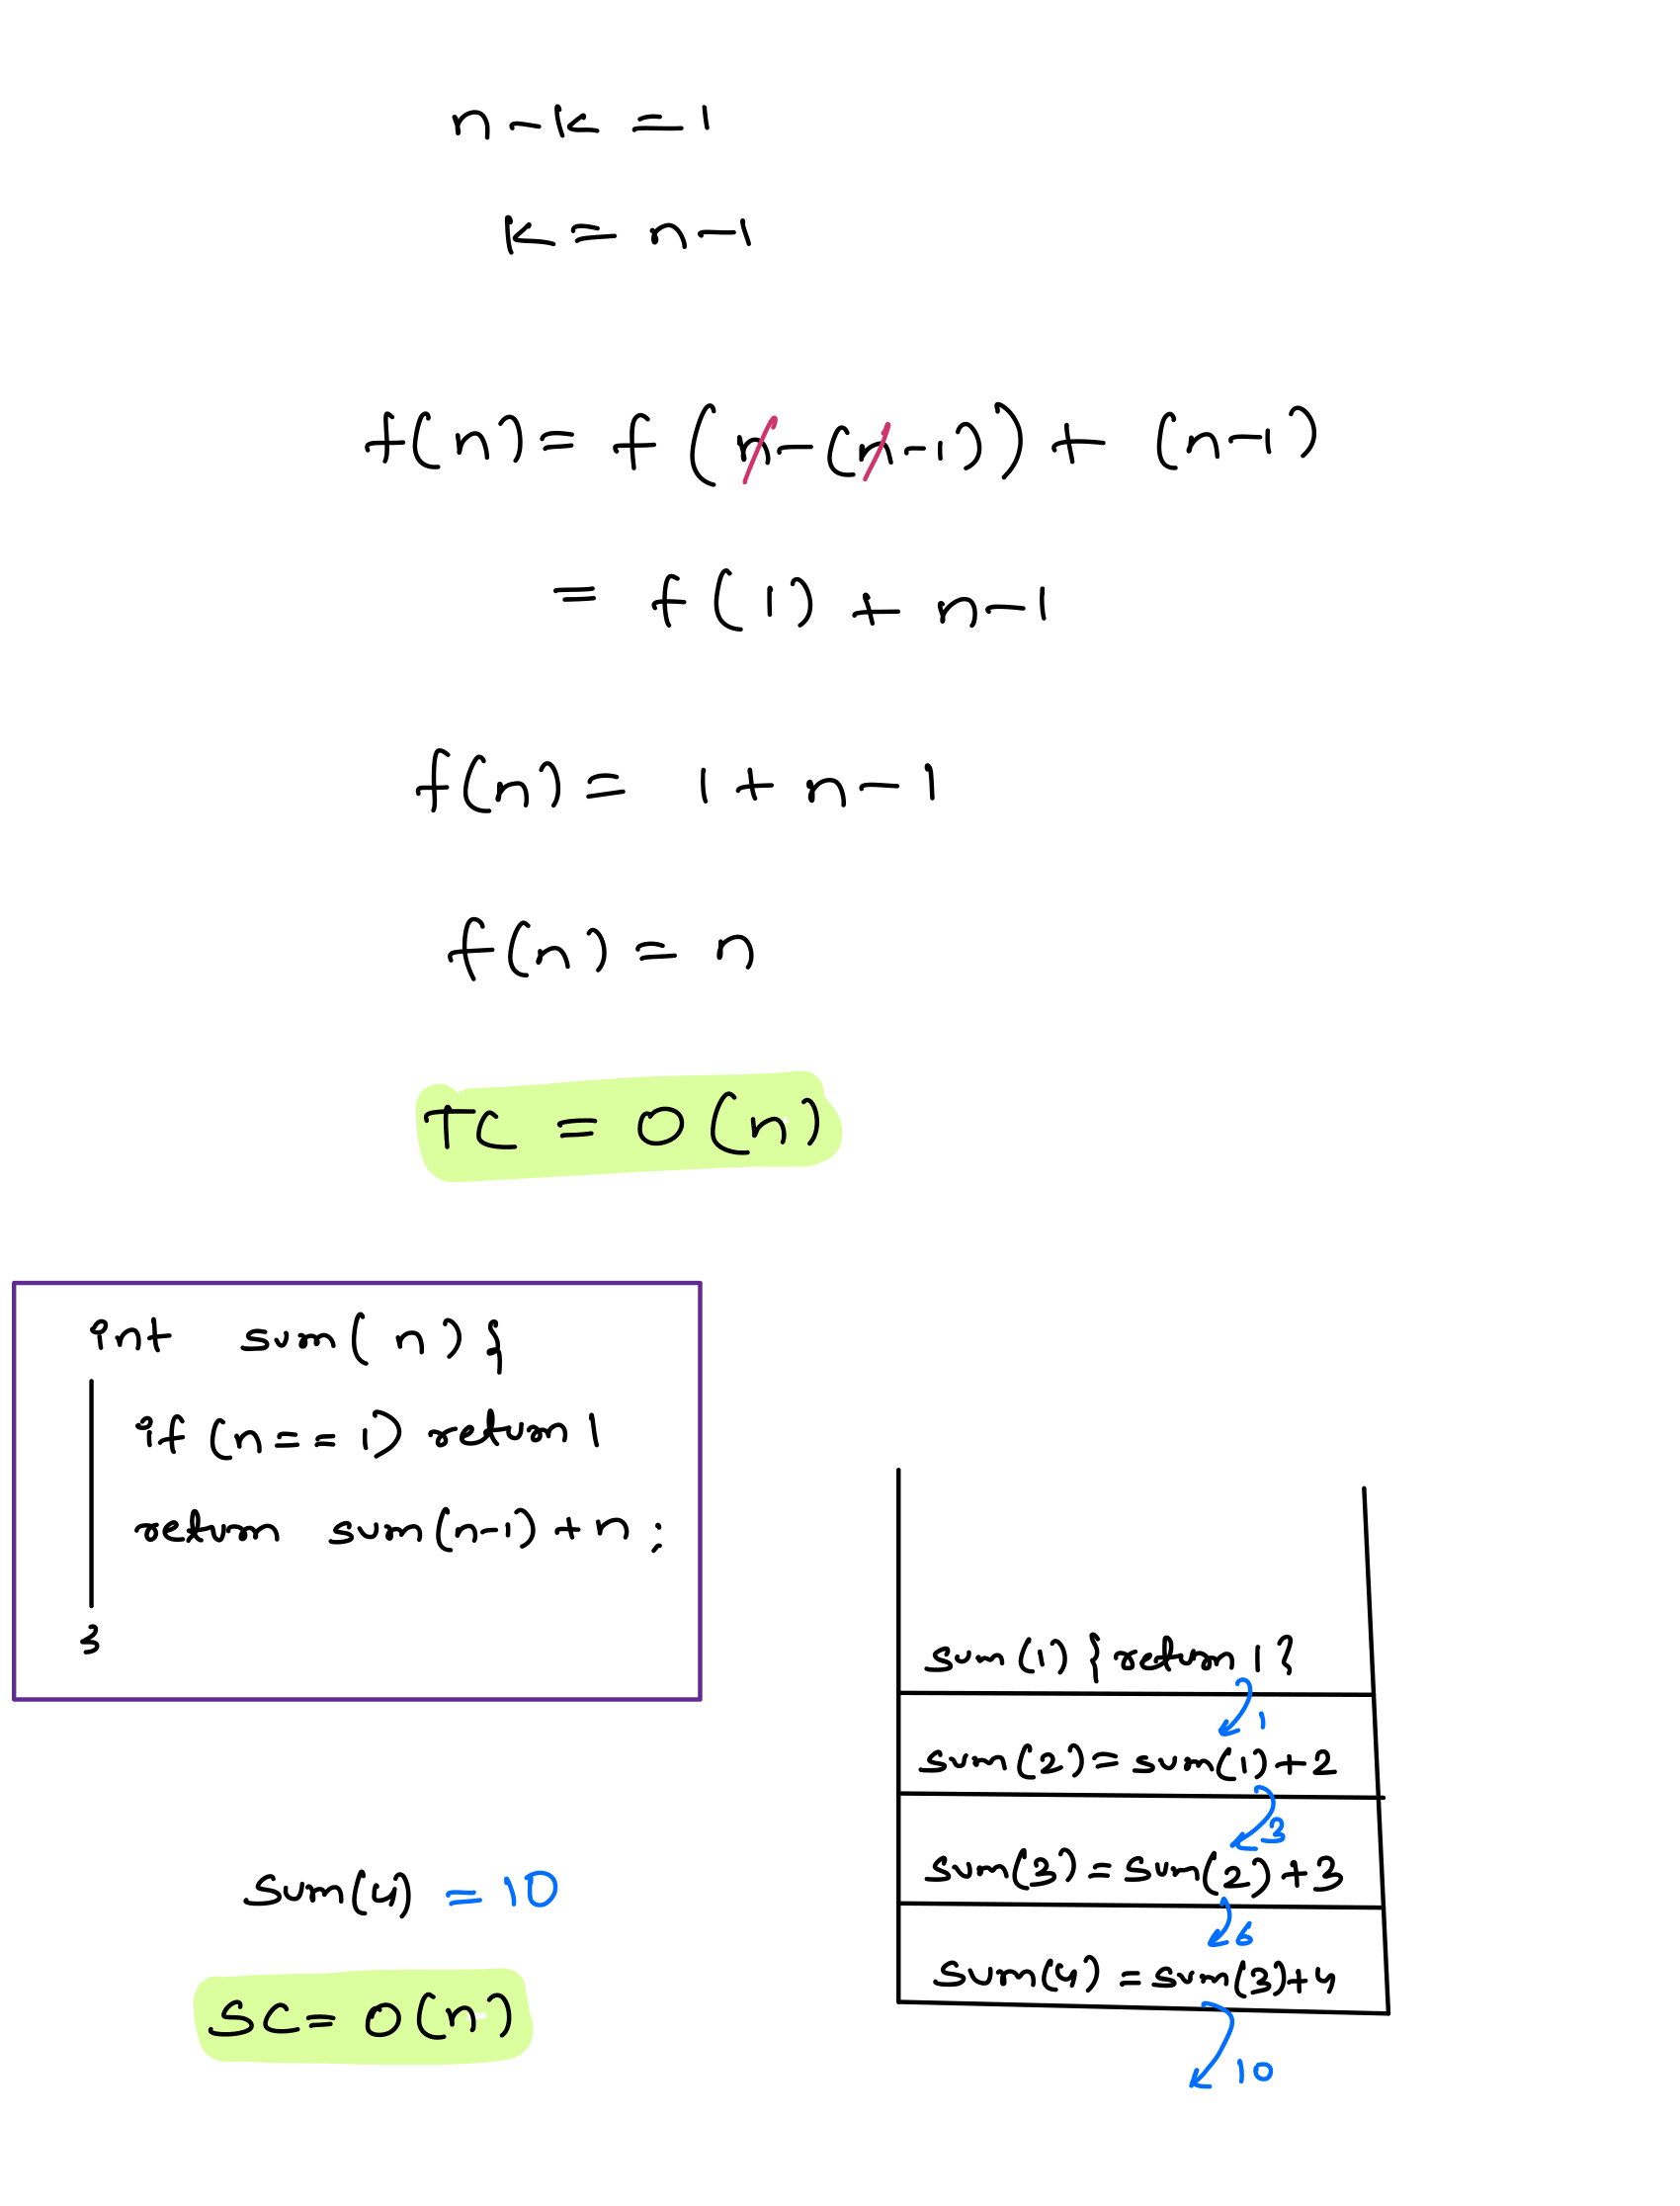 n-k = 1
k = n-1
f(n) = f(n-(n-1)) + (n-1)
= f(1) + n-1
f(n) = 1 + n-1
f(n) = n
TC = O(n)
int sum(n) {
if (n==1) return 1
return sum(n-1) + n ;
}
sum(1) {return 1}
1
sum(2) = sum(1)+2
3
sum(3) = sum(2)+3
6
sum(4) = sum(3)+4
10
sum(4) = 10
SC = O(n)